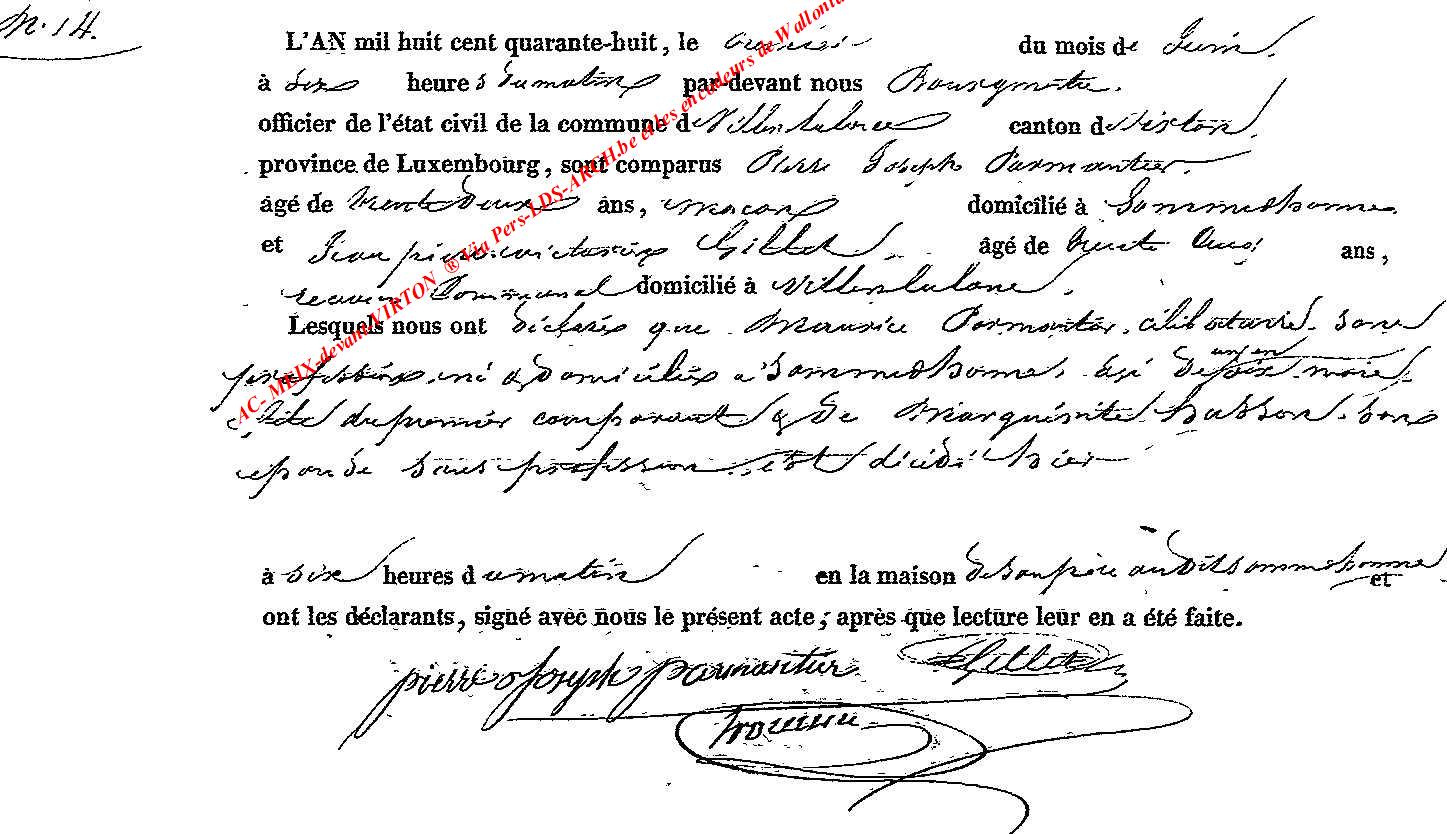 N.° 14.
L'AN mil huit cent quarante-huit, le du mois de Juin.
à dix heures du matin par devant nous Bourgmestre.
officier de l'état civil de la commune de Villers la loue canton de Virton.
province de Luxembourg, sont comparus Pierre Joseph Parmantier.
âgé de trente deux ans, maçon domicilié à Sommethonne
et Jean pierre Gillet âgé de trente ans,
receveur Communal domicilié à Villers la loue.
Lesquels nous ont déclaré que Maurice Parmantier, célibataire, sans
profession, né & domicilié à Sommethonne, agé de un an six mois,
fils du premier comparant & de Marguerite Habson, son
epouse sans profession, est décédé hier
à six heures du matin en la maison de son père audit Sommethonne et
ont les déclarants, signé avec nous le présent acte, après que lecture leur en a été faite.
pierre Joseph parmantier Gillet
AC- MEIX-devant VIRTON ® Via Pers-LDS-ARCH.be et les encadeurs de Wallonie